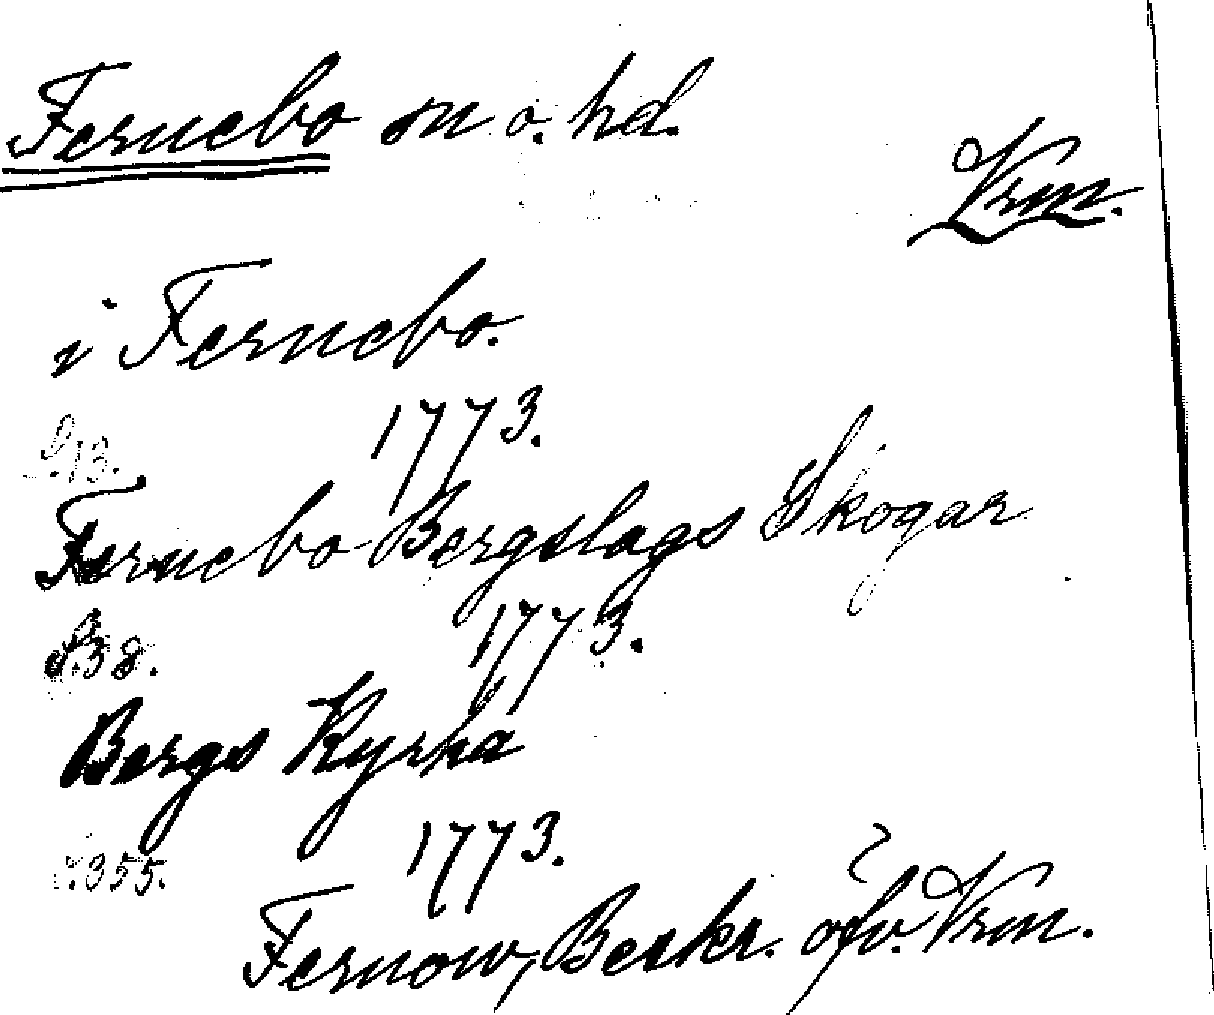 Fernebo sn o. hd.
Vrm.
i Fernebo.
1773.
S. 13.
Fernebo Bergslags Skogar
1773.
S. 38.
Bergs Kyrka
1773.
S. 355.
Fernow, Beskr. öfv. Vrm.